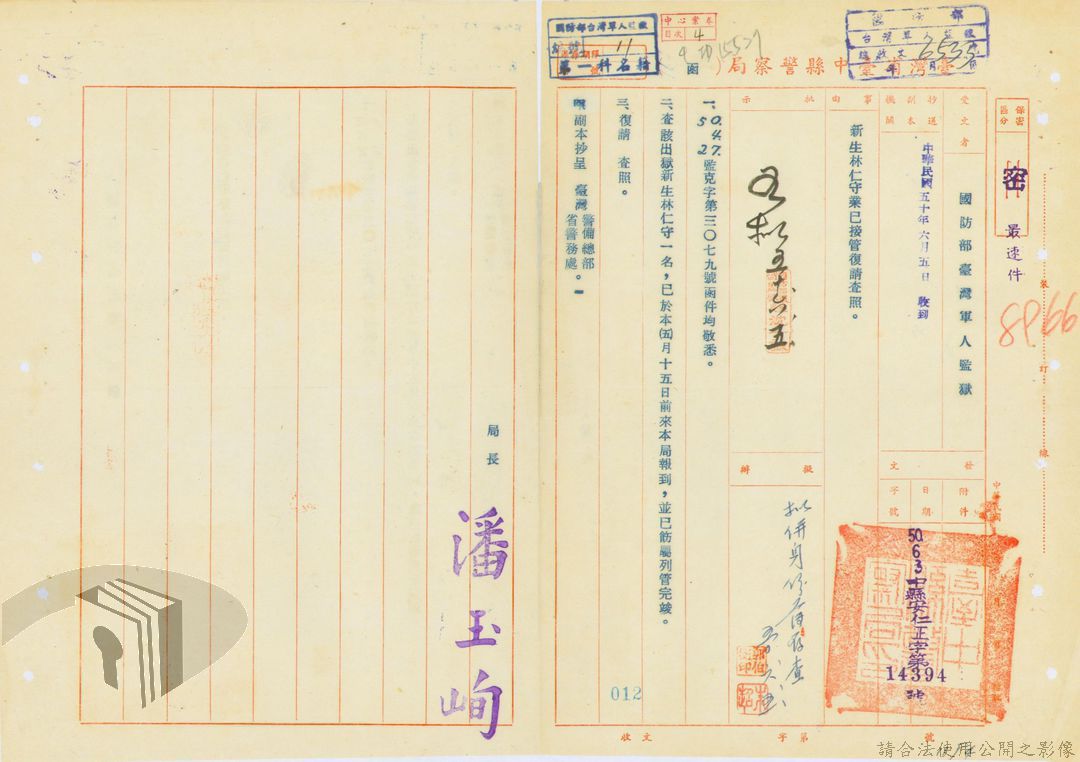 國防部台灣軍人監獄
第一科名籍
11
中心業卷
目次 4
國防部
台灣軍人監獄
總收文 6535
臺灣省臺中縣警察局(函)
保密區分
密
最速件
8P66
裝 訂 線
受文者
國防部臺灣軍人監獄
抄送副本機關
中華民國五十年六月五日 收到
事由
新生林仁守業已接管復請查照。
批示
擬辦
發文
附件
日期
字號
50.6.3中縣安仁正字第14394號
一、50.4.27.監克字第三〇七九號函件均敬悉。
二、查該出獄新生林仁守一名,已於本(五)月十五日前來本局報到,並已飭屬列管完竣。
三、復請 查照。
四、副本抄呈 臺灣警備總部 省警務處。
局長 潘玉峋
012
收文 字第 號
請合法使用公開之影像